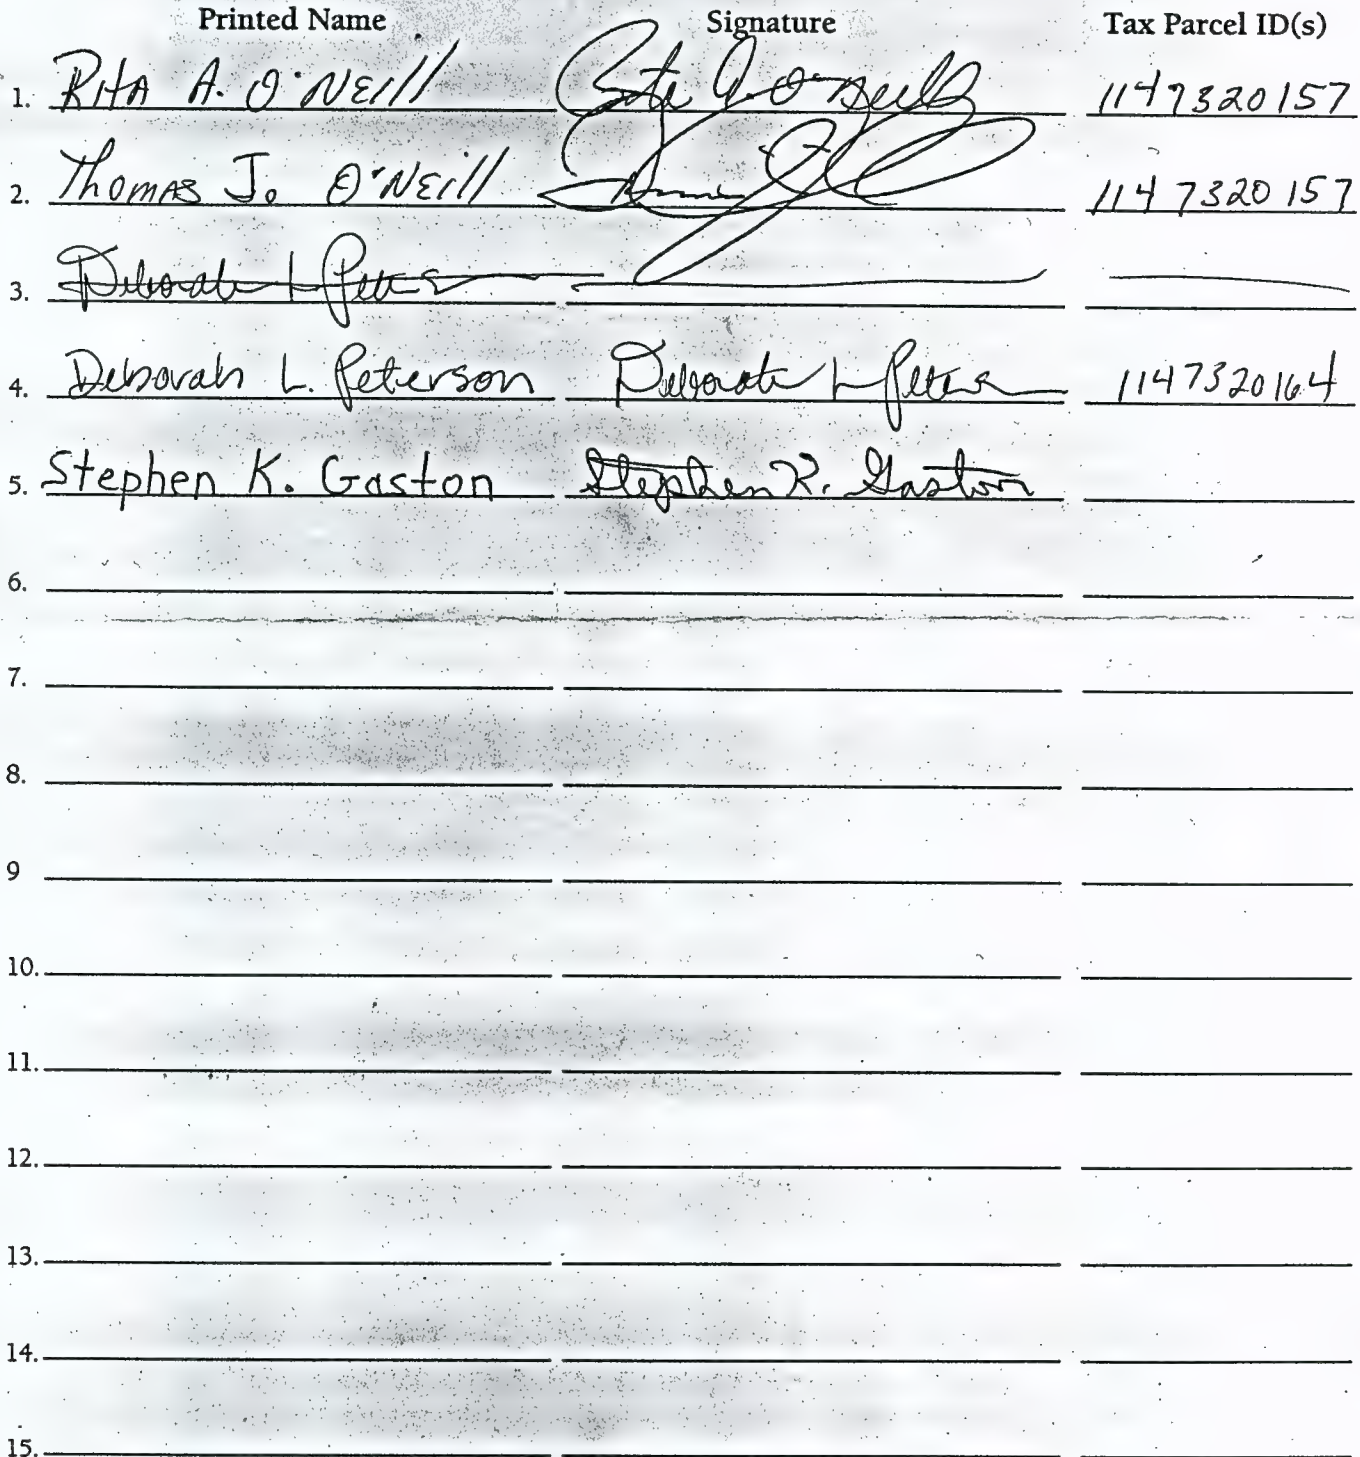 Printed Name Signature Tax Parcel ID(s)
1. RitA A. O'NEill Rita A. O'Neill 1147320157
2. ThomAS J. O'NEill 1147320157
3. Deborah L Peters
4. Deborah L. Peterson Deborah L Peters 1147320164
5. Stephen K. Gaston Stephen K. Gaston
6.
7.
8.
9
10.
11.
12.
13.
14.
15.